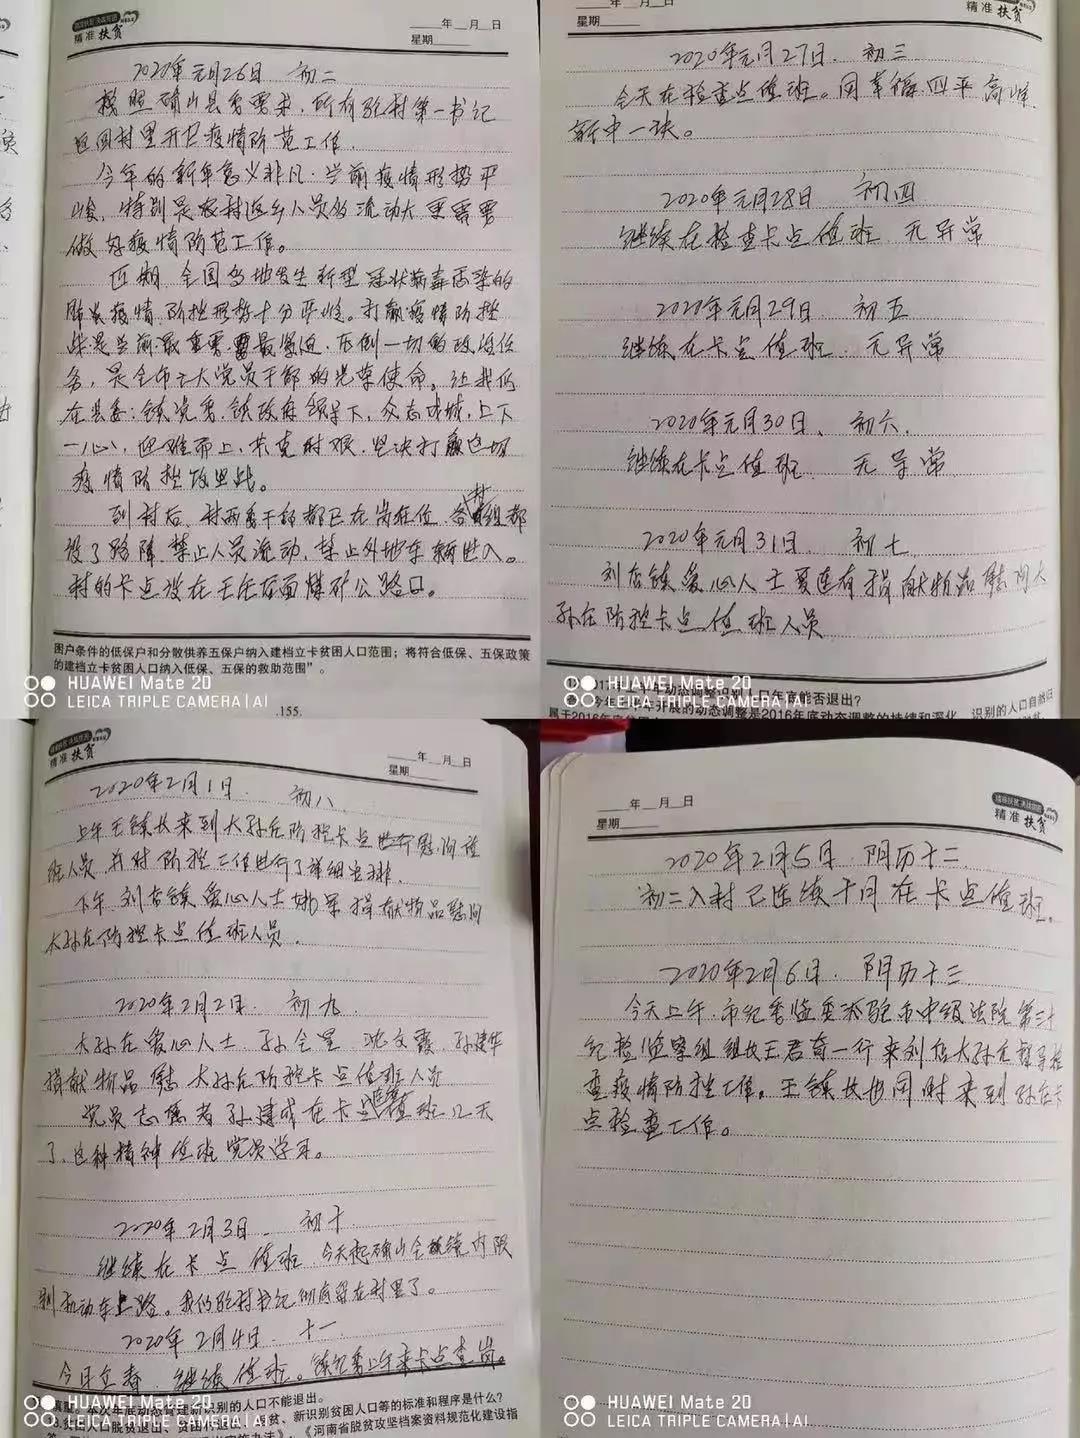 精准扶贫
年 月 日
星期
2020年元月26日 初二
按照确山县委要求,所有驻村第一书记
返回村里开展疫情防范工作.
今年的新年意义非凡.当前疫情形势严
峻,特别是农村返乡人员多流动大更需要
做好疫情防范工作。
近期,全国多地发生新型冠状病毒感染的
肺炎疫情,防控形势十分严峻。打赢疫情防控
战是当前最重要最紧迫,压倒一切的政治任
务,是全市广大党员干部的光荣使命。让我们
在县委、镇党委、镇政府领导下,众志成城,上下
一心,迎难而上,共克时艰,坚决打赢这场
疫情防控攻坚战。
到村后,村两委干部都已在岗在位,各村组都
设了路障,禁止人员流动,禁止外地车辆进入。
村的卡点设在王庄东面煤矿公路口。
困户条件的低保户和分散供养五保户纳入建档立卡贫困人口范围;将符合低保、五保政策
的建档立卡贫困人口纳入低保、五保的救助范围”。
HUAWEI Mate 20
LEICA TRIPLE CAMERA | AI
.155.
年 月 日
星期
精准扶贫
2020年元月27日. 初三
今天在检查点值班。同车俩四平高峰
新中一块。
2020年元月28日 初四
继续在检查卡点值班 无异常
2020年元月29日 初五
继续在卡点值班. 无异常
2020年元月30日、 初六.
继续在卡点值班 无异常
2020年元月31日. 初七
刘店镇爱心人士夏连有捐献物品慰问大
孙庄防控卡点值班人员
2017年上半年动态调整识别人口年底能否退出?
HUAWEI Mate 20
LEICA TRIPLE CAMERA | AI
精准扶贫
年 月 日
星期
2020年2月1日. 初八
上午王镇长来到大孙庄防控卡点进行慰问值
班人员,并对防控工作进行了详细安排.
下午,刘店镇爱心人士姚军捐献物品慰问
大孙庄防控卡点值班人员.
2020年2月2日. 初九
大孙庄爱心人士,孙全星 沈文霞,孙建华
捐献物品慰大孙庄防控卡点值班人员
党员志愿者孙建成在卡点连续值班几天
了,这种精神值班党员学习。
2020年2月3日. 初十
继续在卡点值班.今天起确山全县境内限
制机动车上路。我们驻村书记彻底留在村里了。
2020年2月4日. 十一
今日立春,继续值班。镇纪委上午来卡点查岗。
真重。本次年底动态管理新识别的人口不能退出。
8.贫困人口脱贫退出、贫困村退出、返贫、新识别贫困人口等的标准和程序是什么?
HUAWEI Mate 20
LEICA TRIPLE CAMERA | AI
年 月 日
星期
精准扶贫
2020年2月5日. 阴历十二.
初二入村已连续十日在卡点值班。
2020年2月6日. 阴历十三.
今天上午,市纪委监委派驻市中级法院第三十
纪检监察组组长王君奇一行来刘店大孙庄督导检
查疫情防控工作。王镇长也同时来到孙庄卡
点检查工作。
HUAWEI Mate 20
LEICA TRIPLE CAMERA | AI